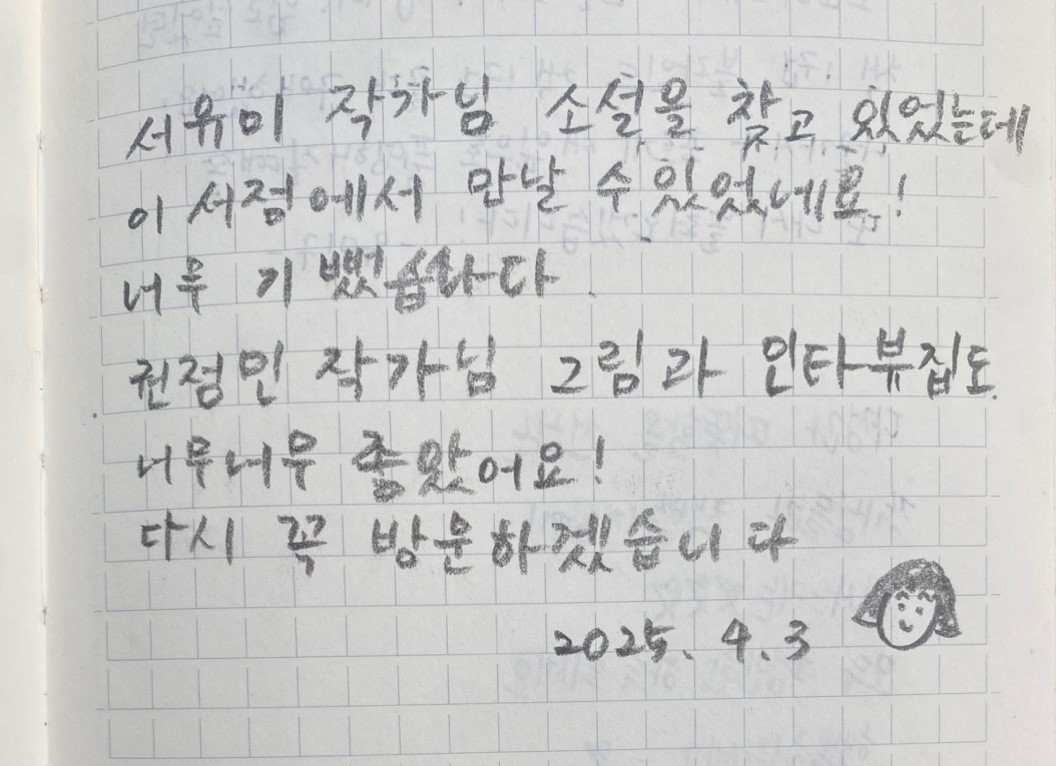 서유미 작가님 소설을 찾고 있었는데
이 서점에서 만날 수 있었네요!
너무 기뻤습니다.
권정민 작가님 그림과 인터뷰집도
너무너무 좋았어요!
다시 꼭 방문하겠습니다
2025. 4. 3